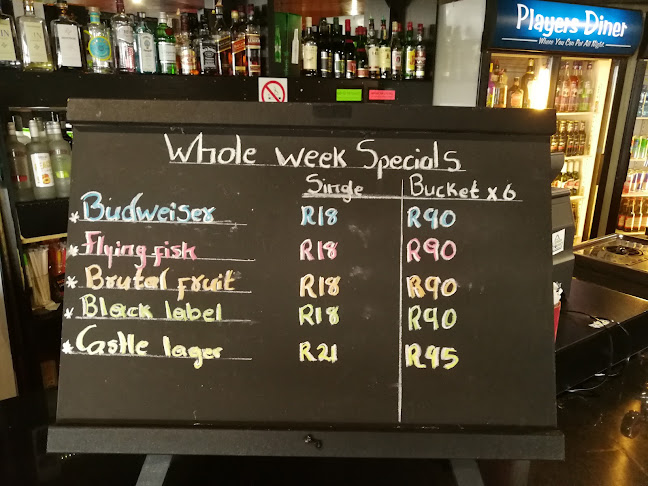 Players Diner
Where You Can Put All Night.
Whole Week Specials
Single Bucket x 6
* Budweiser R18 R90
* Flying fish R18 R90
* Brutal fruit R18 R90
* Black label R18 R90
* Castle lager R21 R95